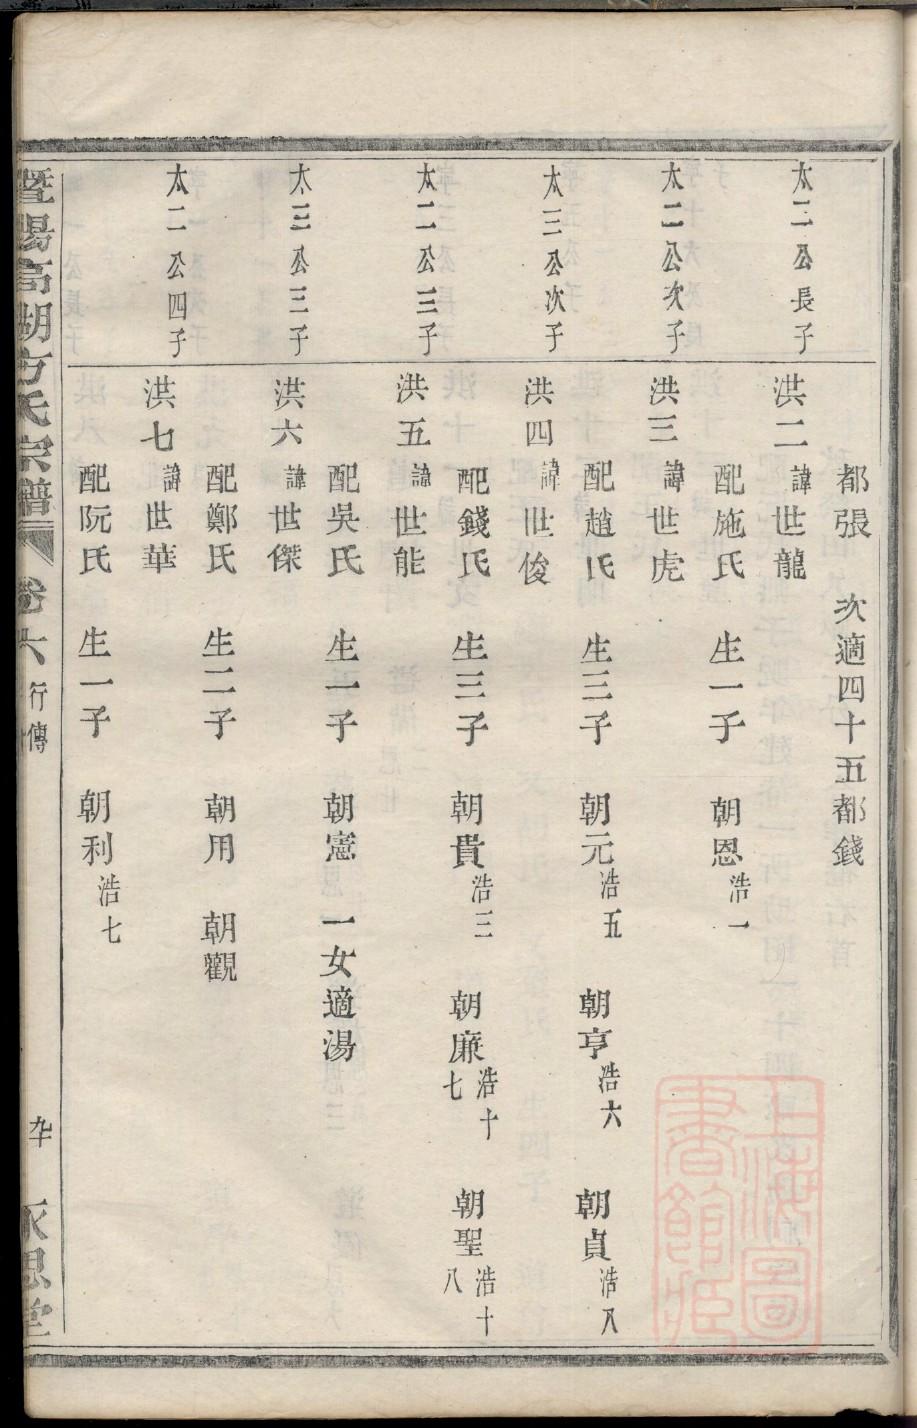 都張 次適四十五都錢
太二公長子
洪二諱世龍
配施氏 生一子 朝恩浩一
太二公次子
洪三諱世虎
配趙氏 生三子 朝元浩五 朝亨浩六 朝貞浩八
太三公次子
洪四諱世俊
配錢氏 生三子 朝貴浩三 朝廉浩十七 朝聖浩十八
太二公三子
洪五諱世能
配吳氏 生一子 朝憲 一女適湯
太三公三子
洪六諱世傑
配鄭氏 生二子 朝用 朝觀
太二公四子
洪七諱世華
配阮氏 生一子 朝利浩七
暨陽高湖方氏宗譜 卷六 行傳 永思堂
上海圖書館藏